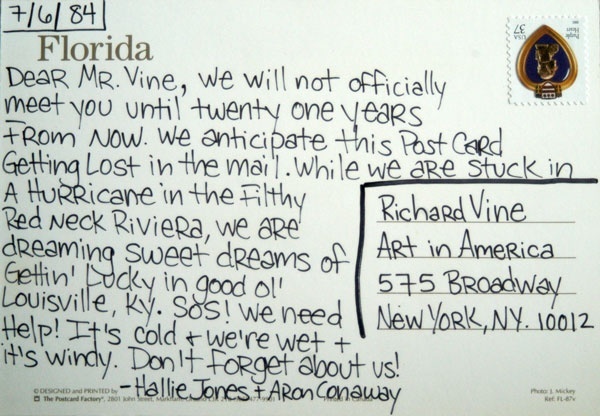 7/6/84
Florida
Dear Mr. Vine, we will not officially
meet you until twenty one years
from now. We anticipate this Post Card
Getting Lost in the mail. While we are stuck in
A Hurricane in the Filthy
Red Neck Riviera, we are
dreaming sweet dreams of
Gettin' Lucky in good ol'
Louisville, Ky. SOS! We need
Help! It's cold + we're wet +
it's windy. Don't forget about us!
- Hallie Jones + Aron Conaway
Purple Heart
USA
37
Richard Vine
Art in America
575 Broadway
New York, NY. 10012
© DESIGNED and PRINTED by
The Postcard Factory®, 2801 John Street, Markham
Printed in Canada
Photo: J. Mickey
Ref: FL-87v